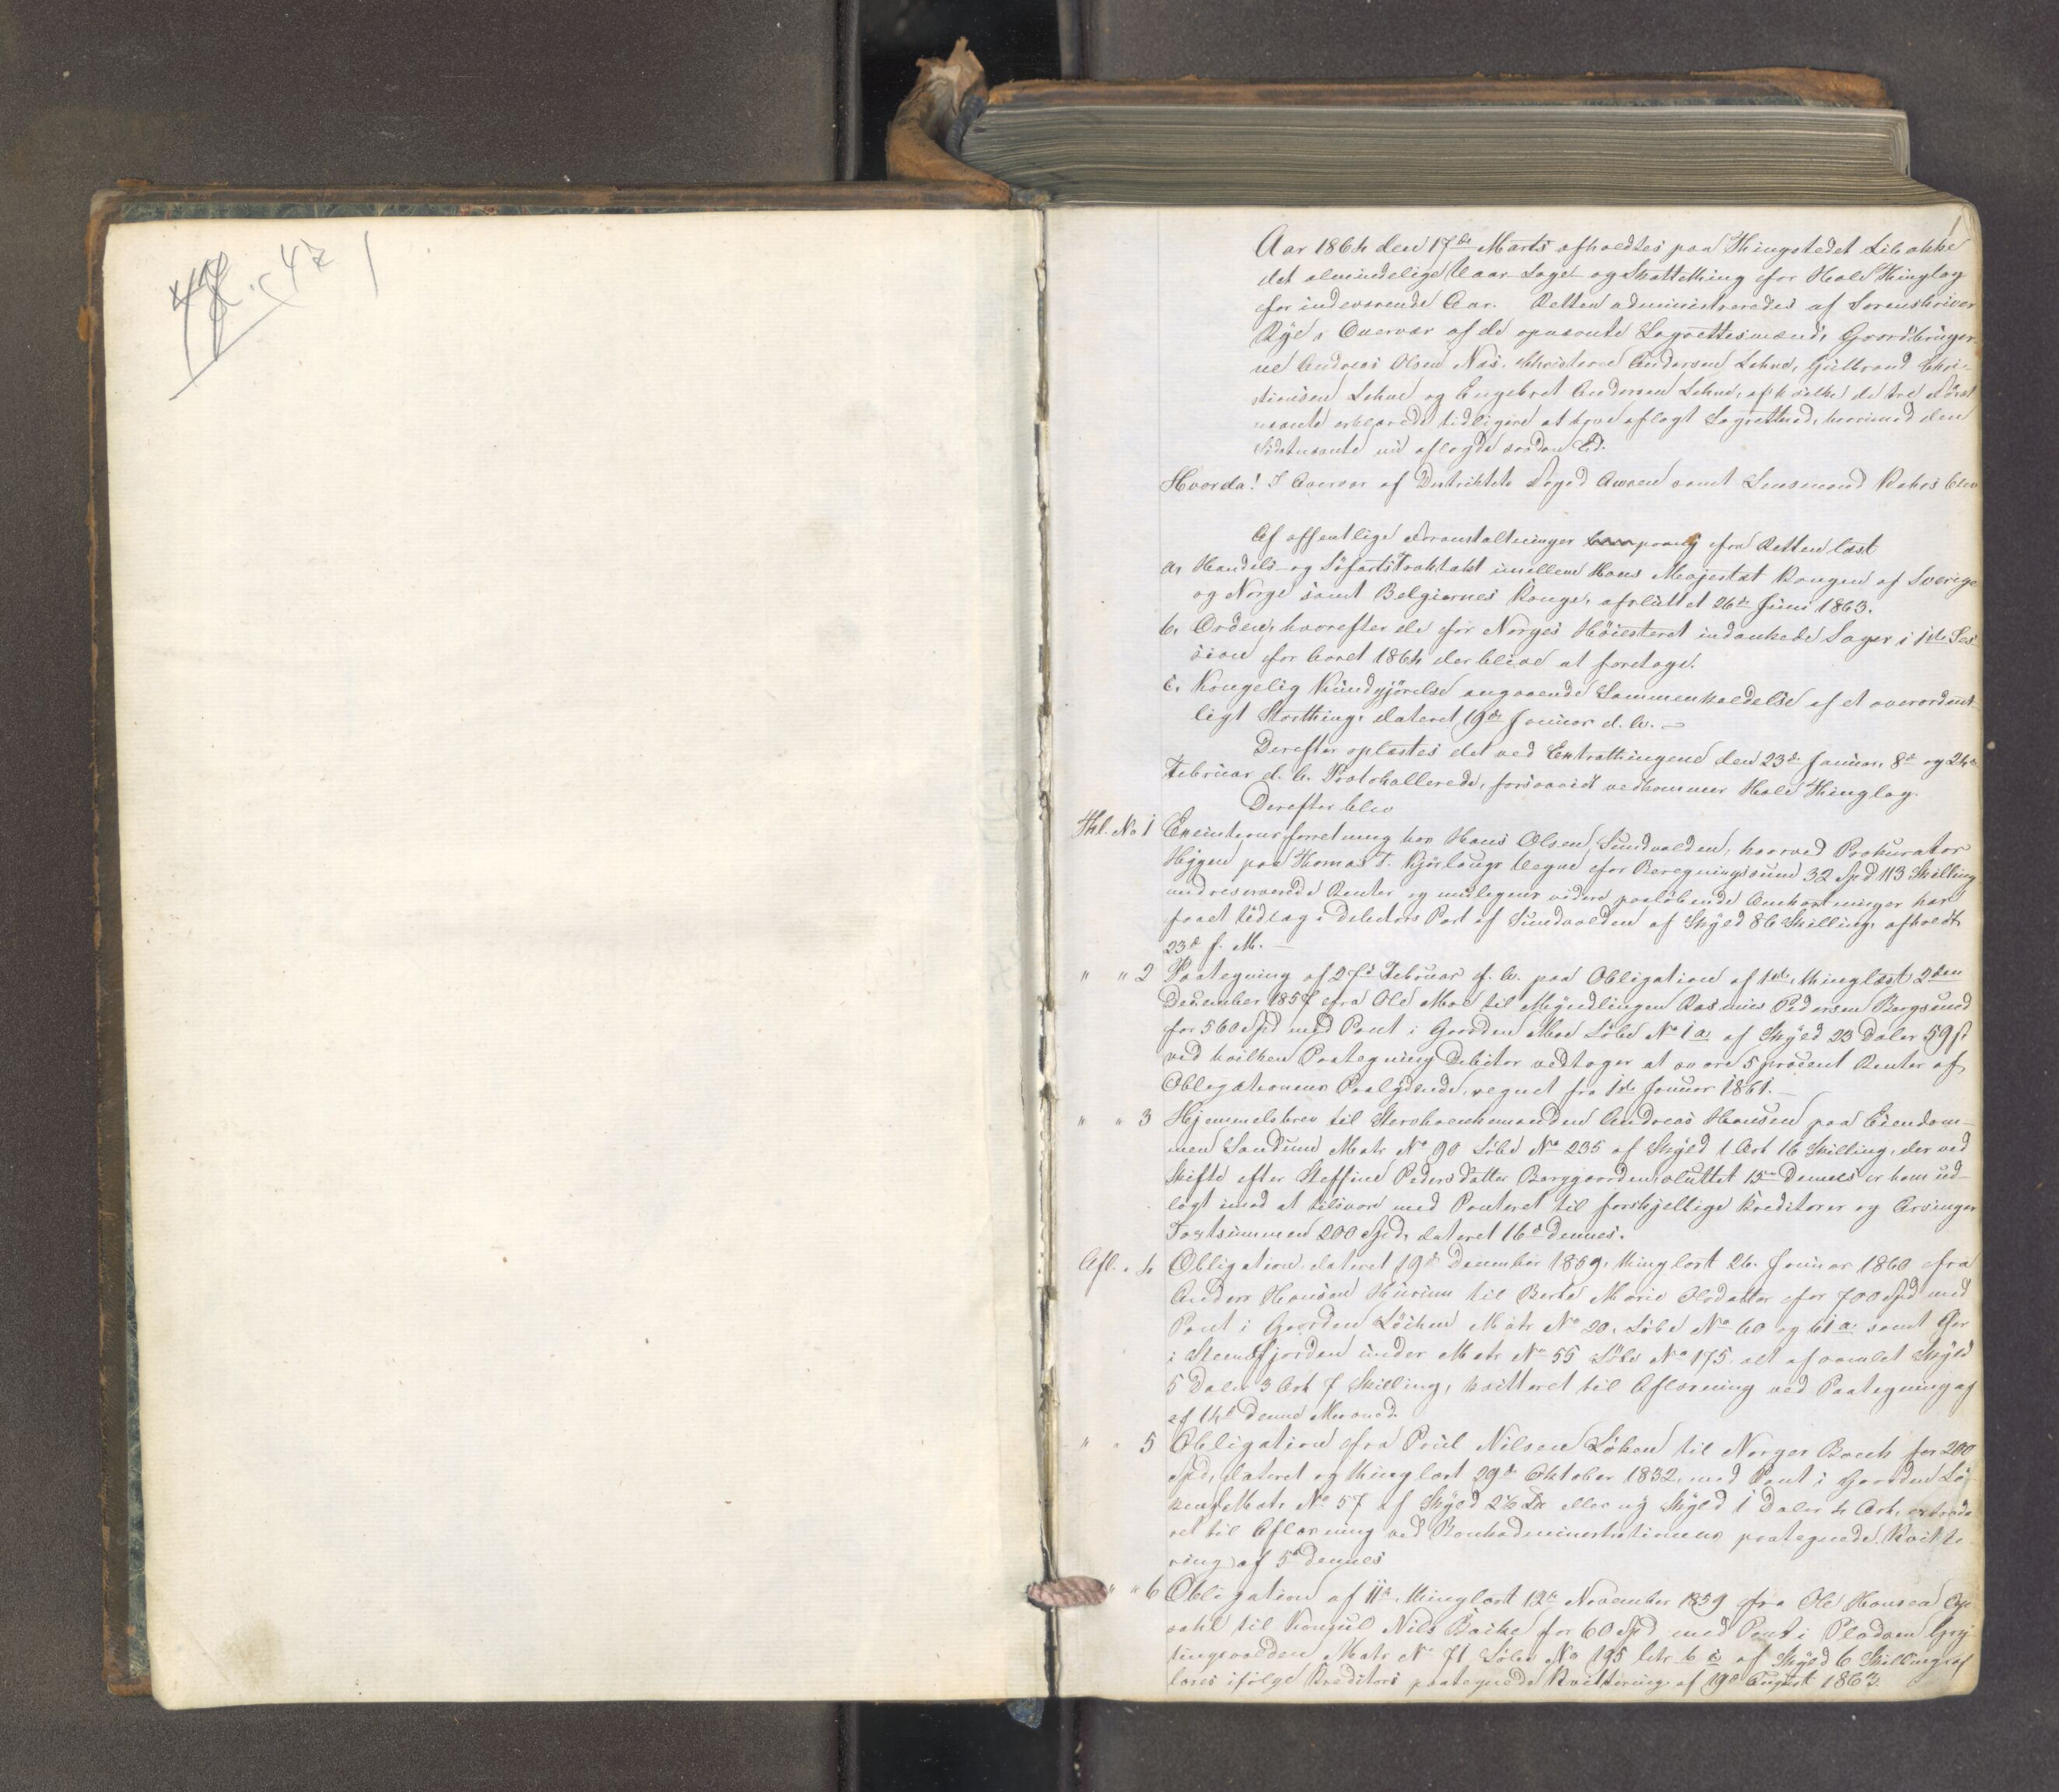 47
1
Aar 1864 den 17de Marts afholdtes paa Thingstedet Libakke
det almindelige Vaar- Sage- og Skattething for Hole Thinglag
for indeværende Aar. Retten administreredes af Sorenskriver
Rye, Overvær af de opnævnte Lagrettesmænd, Gaardbruger-
ne Andreas Olsen Næs, Christen Andersen Lehne, Gulbrand Chri-
stiansen Lehne og Engebret Andersen Lehne, af hvilke de tre først
nævnte erklærede tidligere at have aflagt Lagrettesed, hvorimod den
Sidstnævnte nu aflagde saadan Ed.
Hvorda! I Overvær af Distriktets Foged samt Lensmand blev
Af offentlige Foranstaltninger fra Retten læst
a, Handels- og Søfarts Traktakt imellem Hans Majestæt Kongen af Sverige
og Norge samt Belgiernes Konge, afsluttet 26de Juni 1863.
b, Orden, hvorefter de for Norges Høiesteret indankede Sager i 1ste Ses-
sion for Aaret 1864 der blive at foretage.
c, Kongelig Kundgjørelse angaaende Sammenkaldelse af et overordent-
ligt Storthing, dateret 19de Januar d. A. –
Derefter oplæstes det ved Extrathingene den 23de Januar, 8de og 24de
Februar d. A. Protokollerede, forsaavidt vedkommer Hole Thinglag.
Derefter blev
Thl. No 1 Executionsforretning hos Hans Olsen Sundvolden, hvorved Prokurator
Hygen paa Thomas T. Vegne for Beregningssum 32 Spd 113 Skilling
med reserverede Renter og muligens videre paaløbende Omkostninger har
faaet Udlæg i Debitors Part af Sundvolden af Skyld 86 Skilling, afholdt
23de f. M. –
" " 2 Paategning af 27de Februar f. A. paa Obligation af 1ste, thinglæst 2den
December 1857 fra Ole Moe til Myndlingen Rasmus Pedersen Borgsund
for 560 Spd med Pant i Gaarden Moe Løbe No 1 a. af Skyld 23 Daler 59 ß
ved hvilken Paategning Debitor vedtager at svare 5 procent Renter af
Obligationens Paalydende, regnet fra 1ste Januar 1861. –
" " 3 Hjemmelsbrev til Andreas Hansen paa Eiendom-
men Sandsund Matr No 90 Løbe No 235 af Skyld 1 Ort 16 Skilling, der ved
Skifte efter Steffine Pedersdatter Borggaarden, sluttet 15de dennes er ham ud-
lagt imod at tilsvare med Panteret til forskjellige Kreditorer og Arvinger
Taxtsummen 200 Spd, dateret 16de dennes.
Afl. " 4 Obligation, dateret 19de December 1859, thinglæst 26. Januar 1860 fra
Anders Hansen Hurum til Berte Marie Olsdatter for 700 Spd med
Pant i Gaarden Løken Matr No 20, Løbe No 60 og 61 a. samt Øer
i Steensfjorden under Matr No 55 Løbe No 175. alt af samlet Skyld
5 Daler 3 Ort 7 Skilling, kvitteret til Aflæsning ved Paategning af
af 14de denne Maaned.
" " 5 Obligation fra Poul Nilsen Løken til Norges Bank for 200
Spd, dateret og thinglæst 29de Oktober 1832, med Pant i Gaarden Lø-
ken Matr No 57 af Skyld eller ny Skyld 1 Daler 4 Ort,
til Aflæsning ved Bankadministrationens paategnede Kvitte
ring af 5te dennes
" " 6 Obligation af 11te, thinglæst 12te November 1859 fra Ole Hansen
til Konsul Nils Backe for 60 Spd med Pant i Pladsen
Matr No 71 Løbe No 195 litr b c af Skyld 6 Skilling af
læses ifølge Kreditors paategnede Kvittering af 19de August 1863.